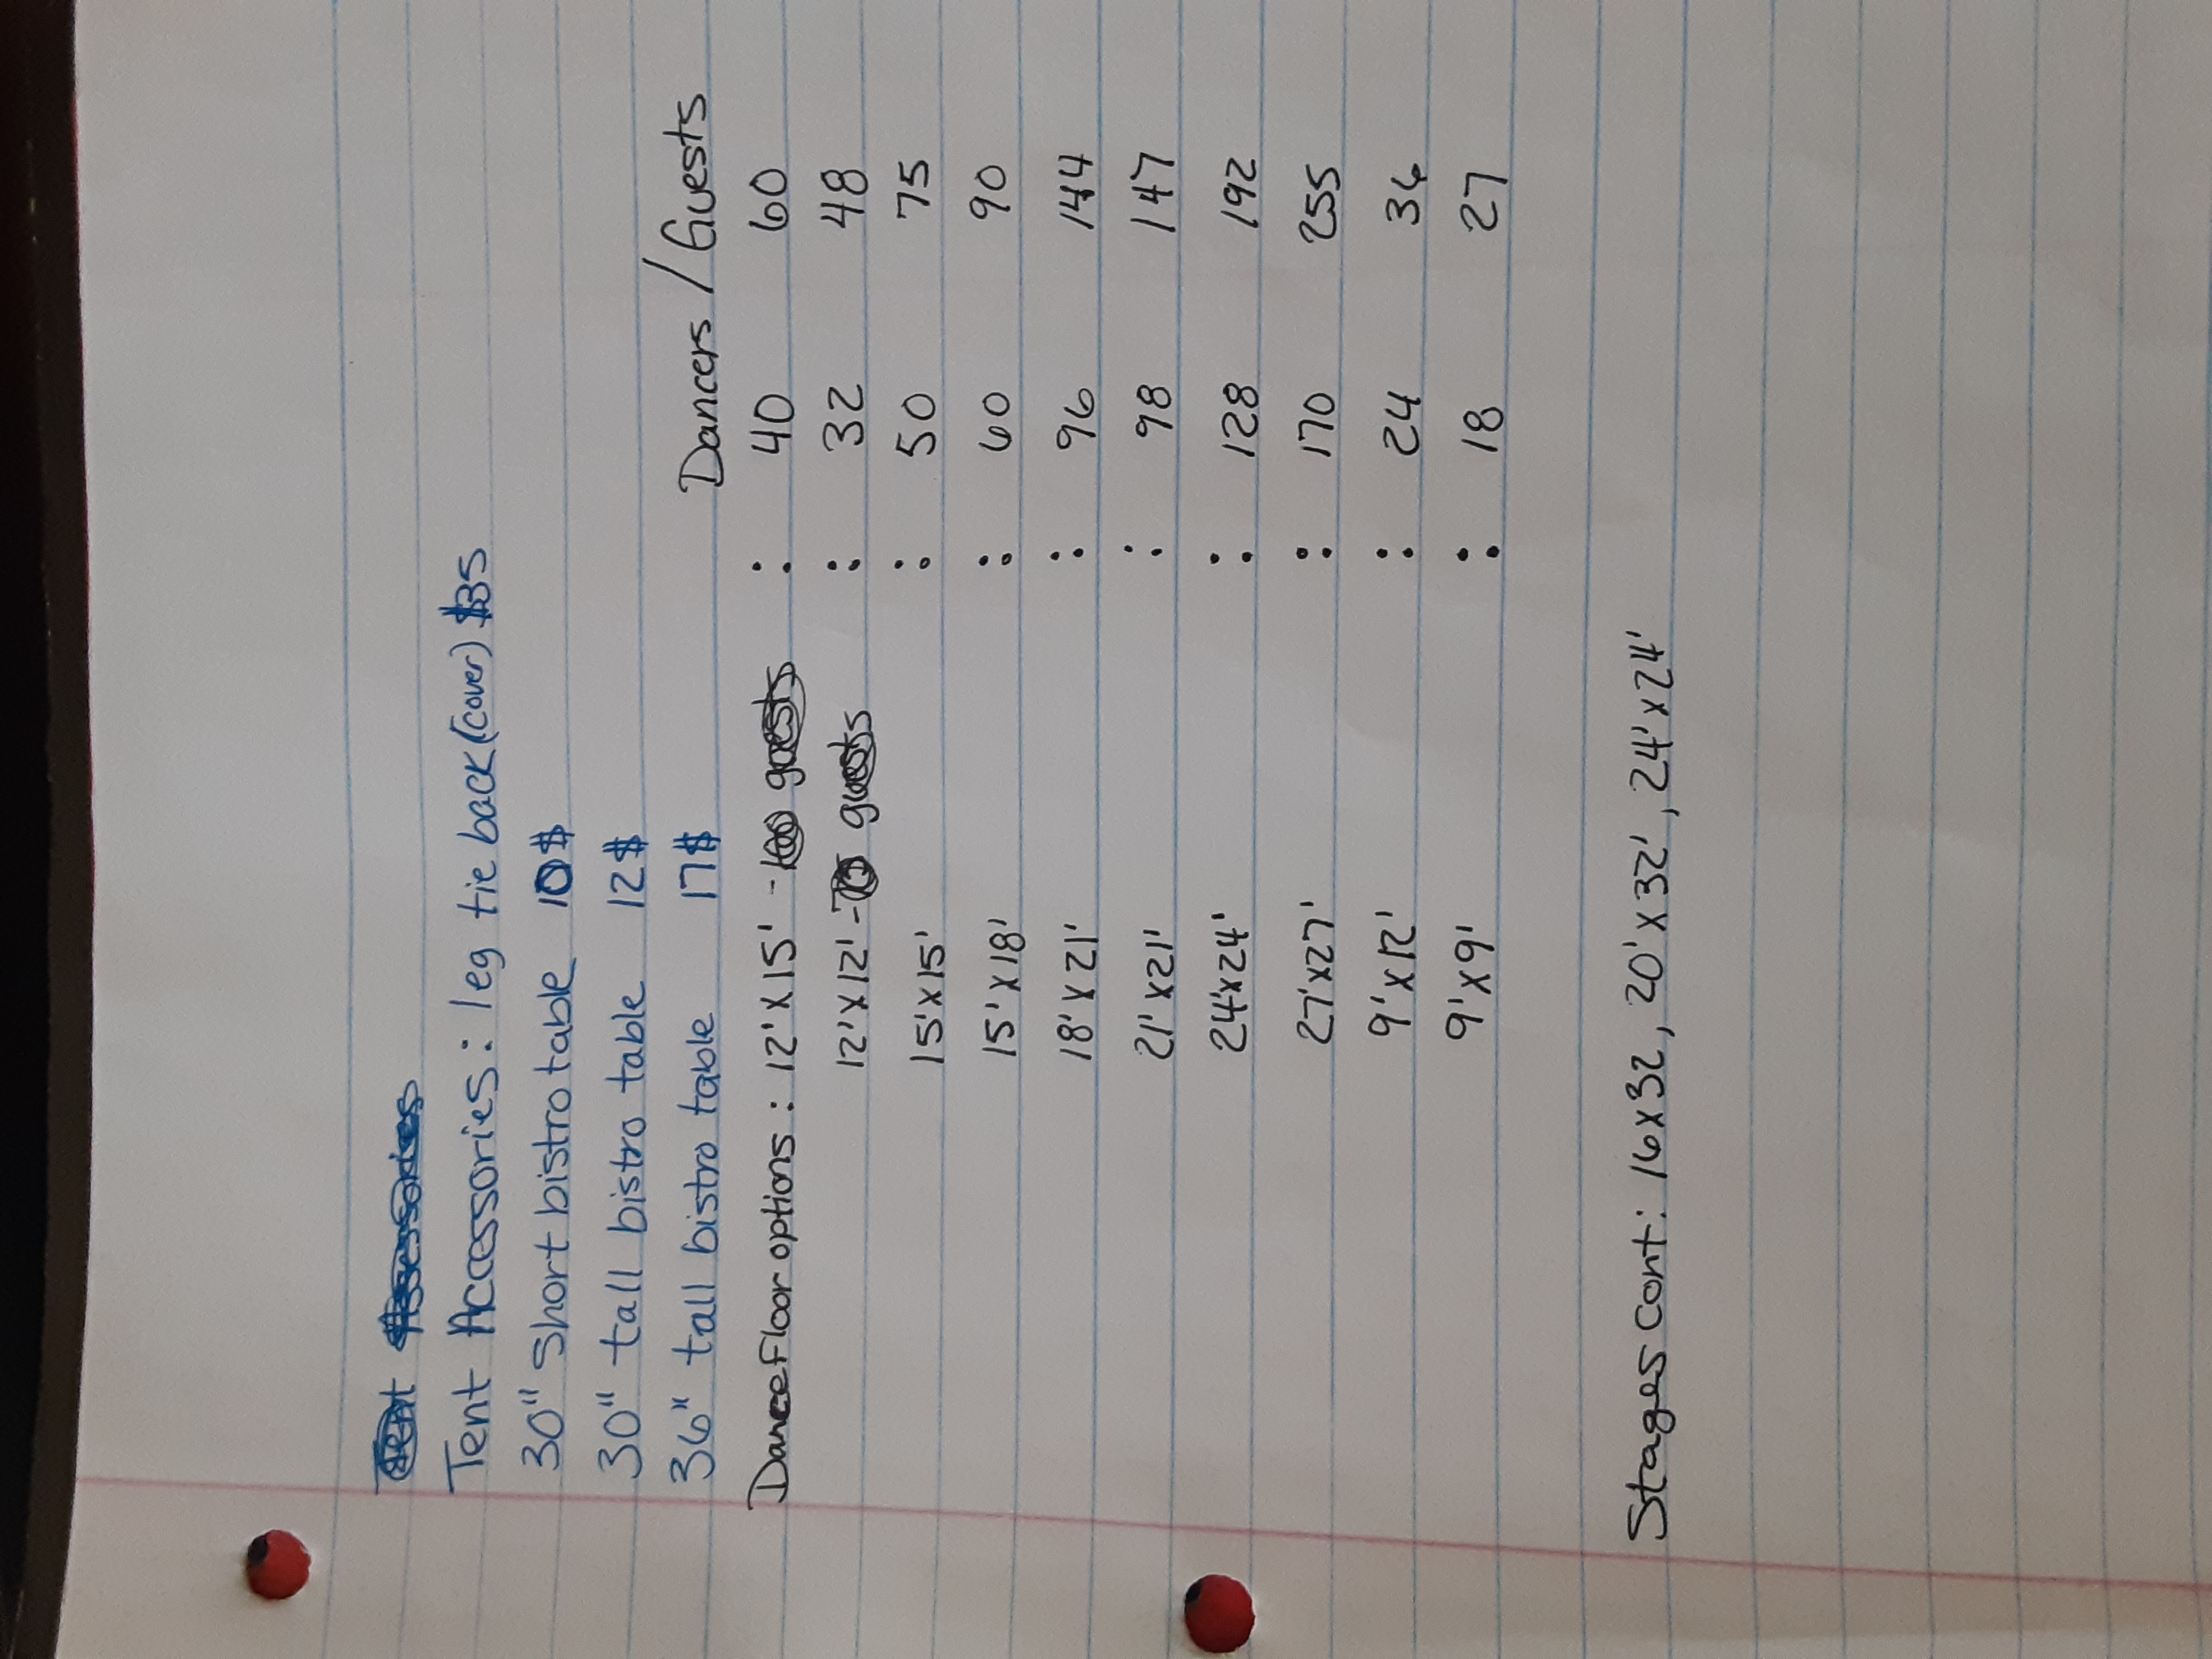 Tent Accessories: leg tie back (cover) $35
30" Short bistro table 10$
30" tall bistro table 12$
36" tall bistro table 17$
Dancers / Guests
Dance Floor options: 12' x 15' - guests : 40 60
12' x 12' - guests : 32 48
15' x 15' : 50 75
15' x 18' : 60 90
18' x 21' : 96 144
21' x 21' : 98 147
24' x 24' : 128 192
27' x 27' : 170 255
9' x 12' : 24 36
9' x 9' : 18 27
Stages cont: 16 x 32, 20' x 32', 24' x 24'